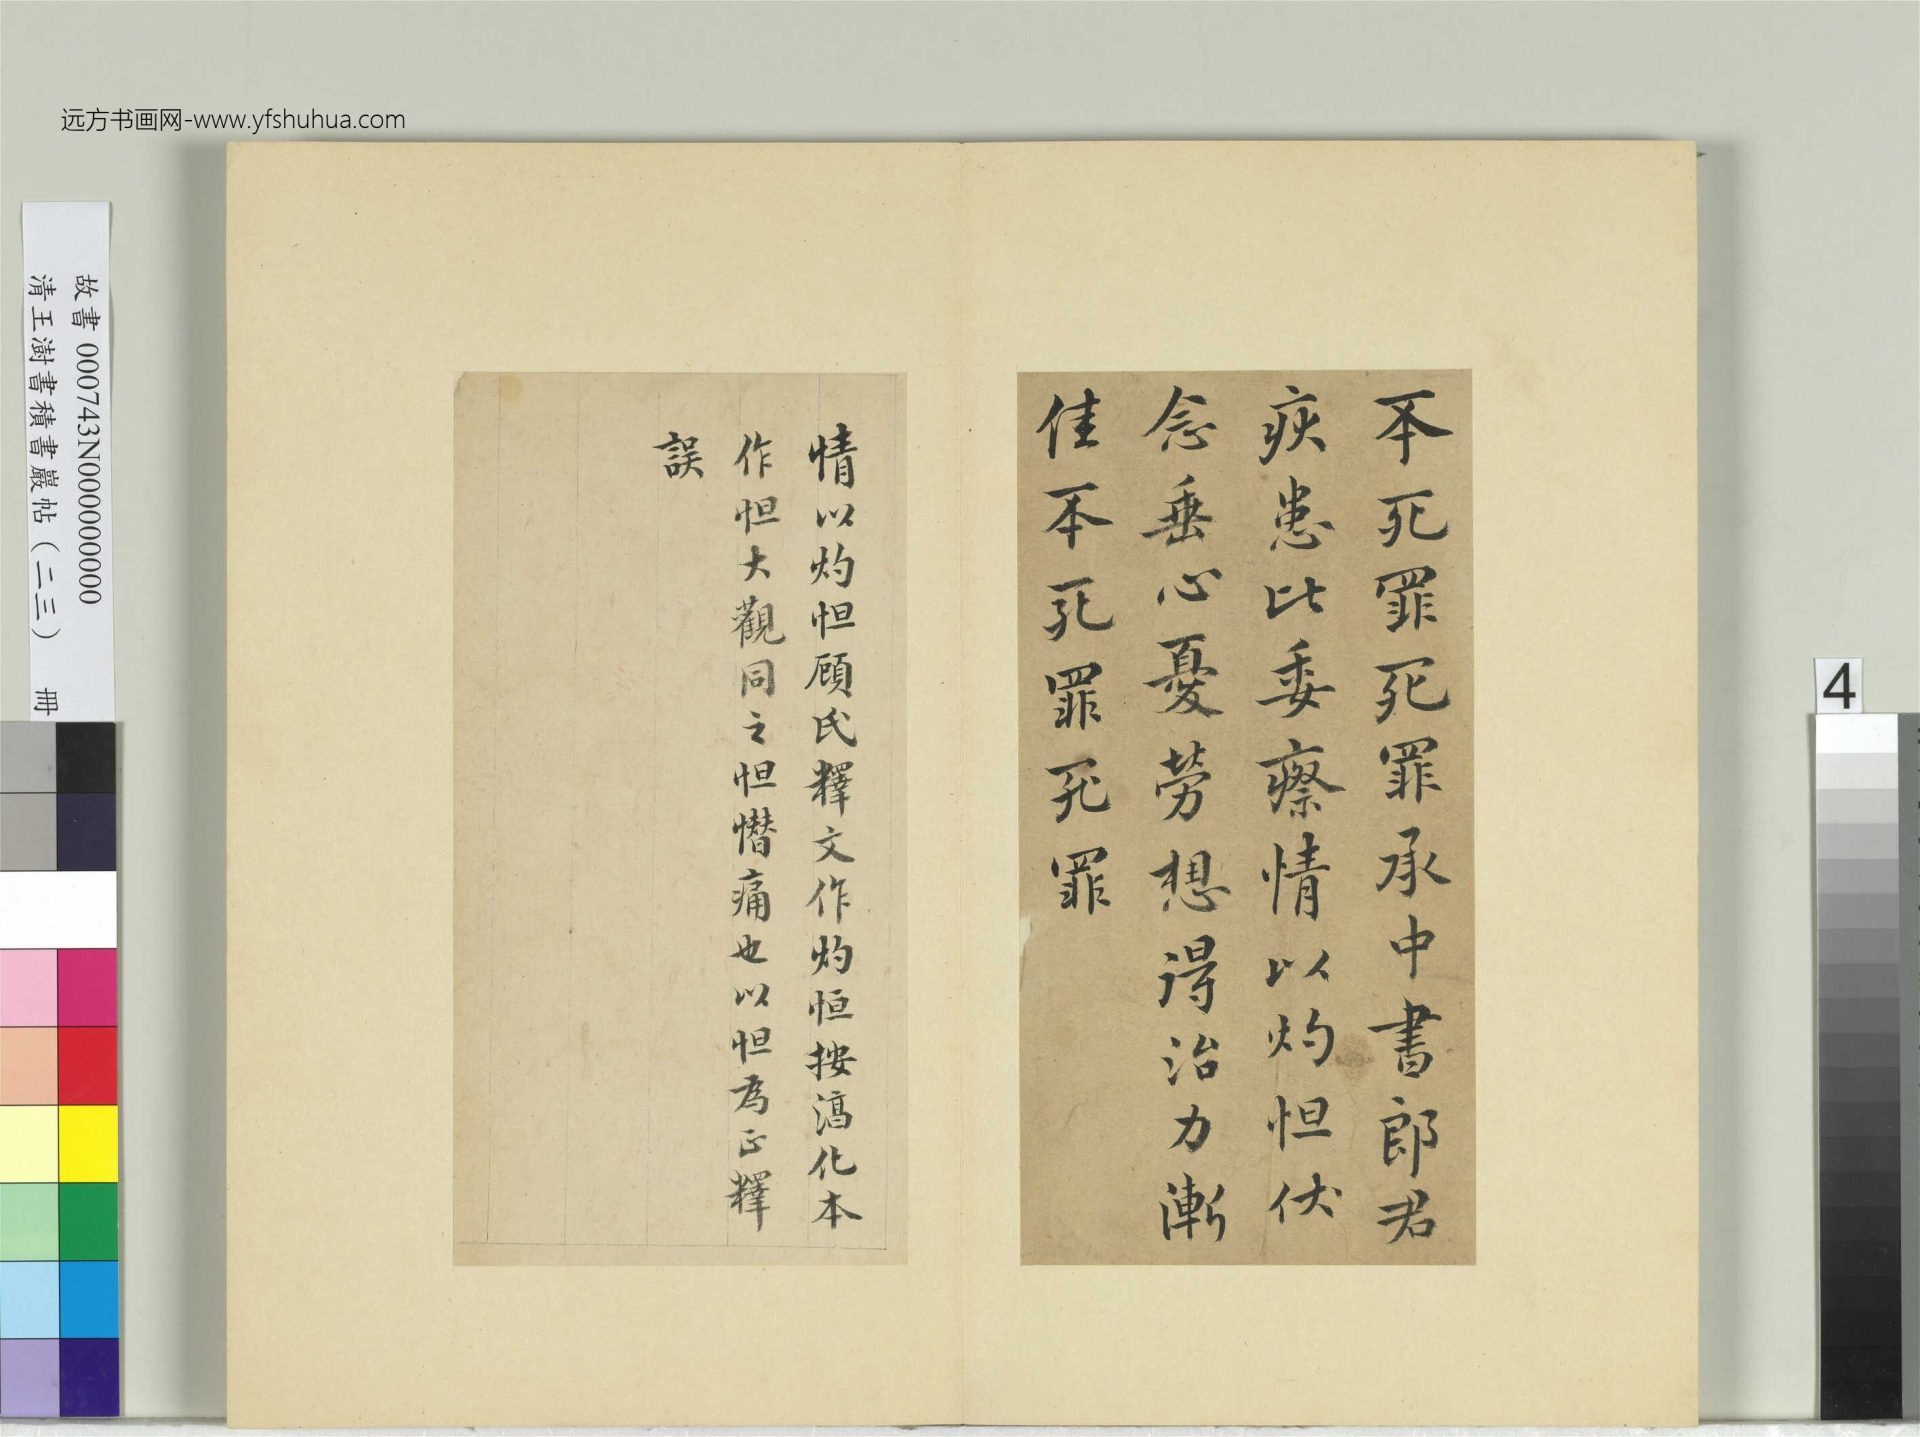 远方书画网-www.yfshuhua.com
故書 000743N000000000
清王澍書積書巖帖(二三) 冊
4
死罪死罪承中書郎君
疾患比委瘵情以灼怛伏
念垂心憂勞想得治力漸
佳 死罪死罪
情以灼怛顧氏釋文作灼恒按淳化本
作怛大觀同之怛憯痛也以怛為正釋
誤